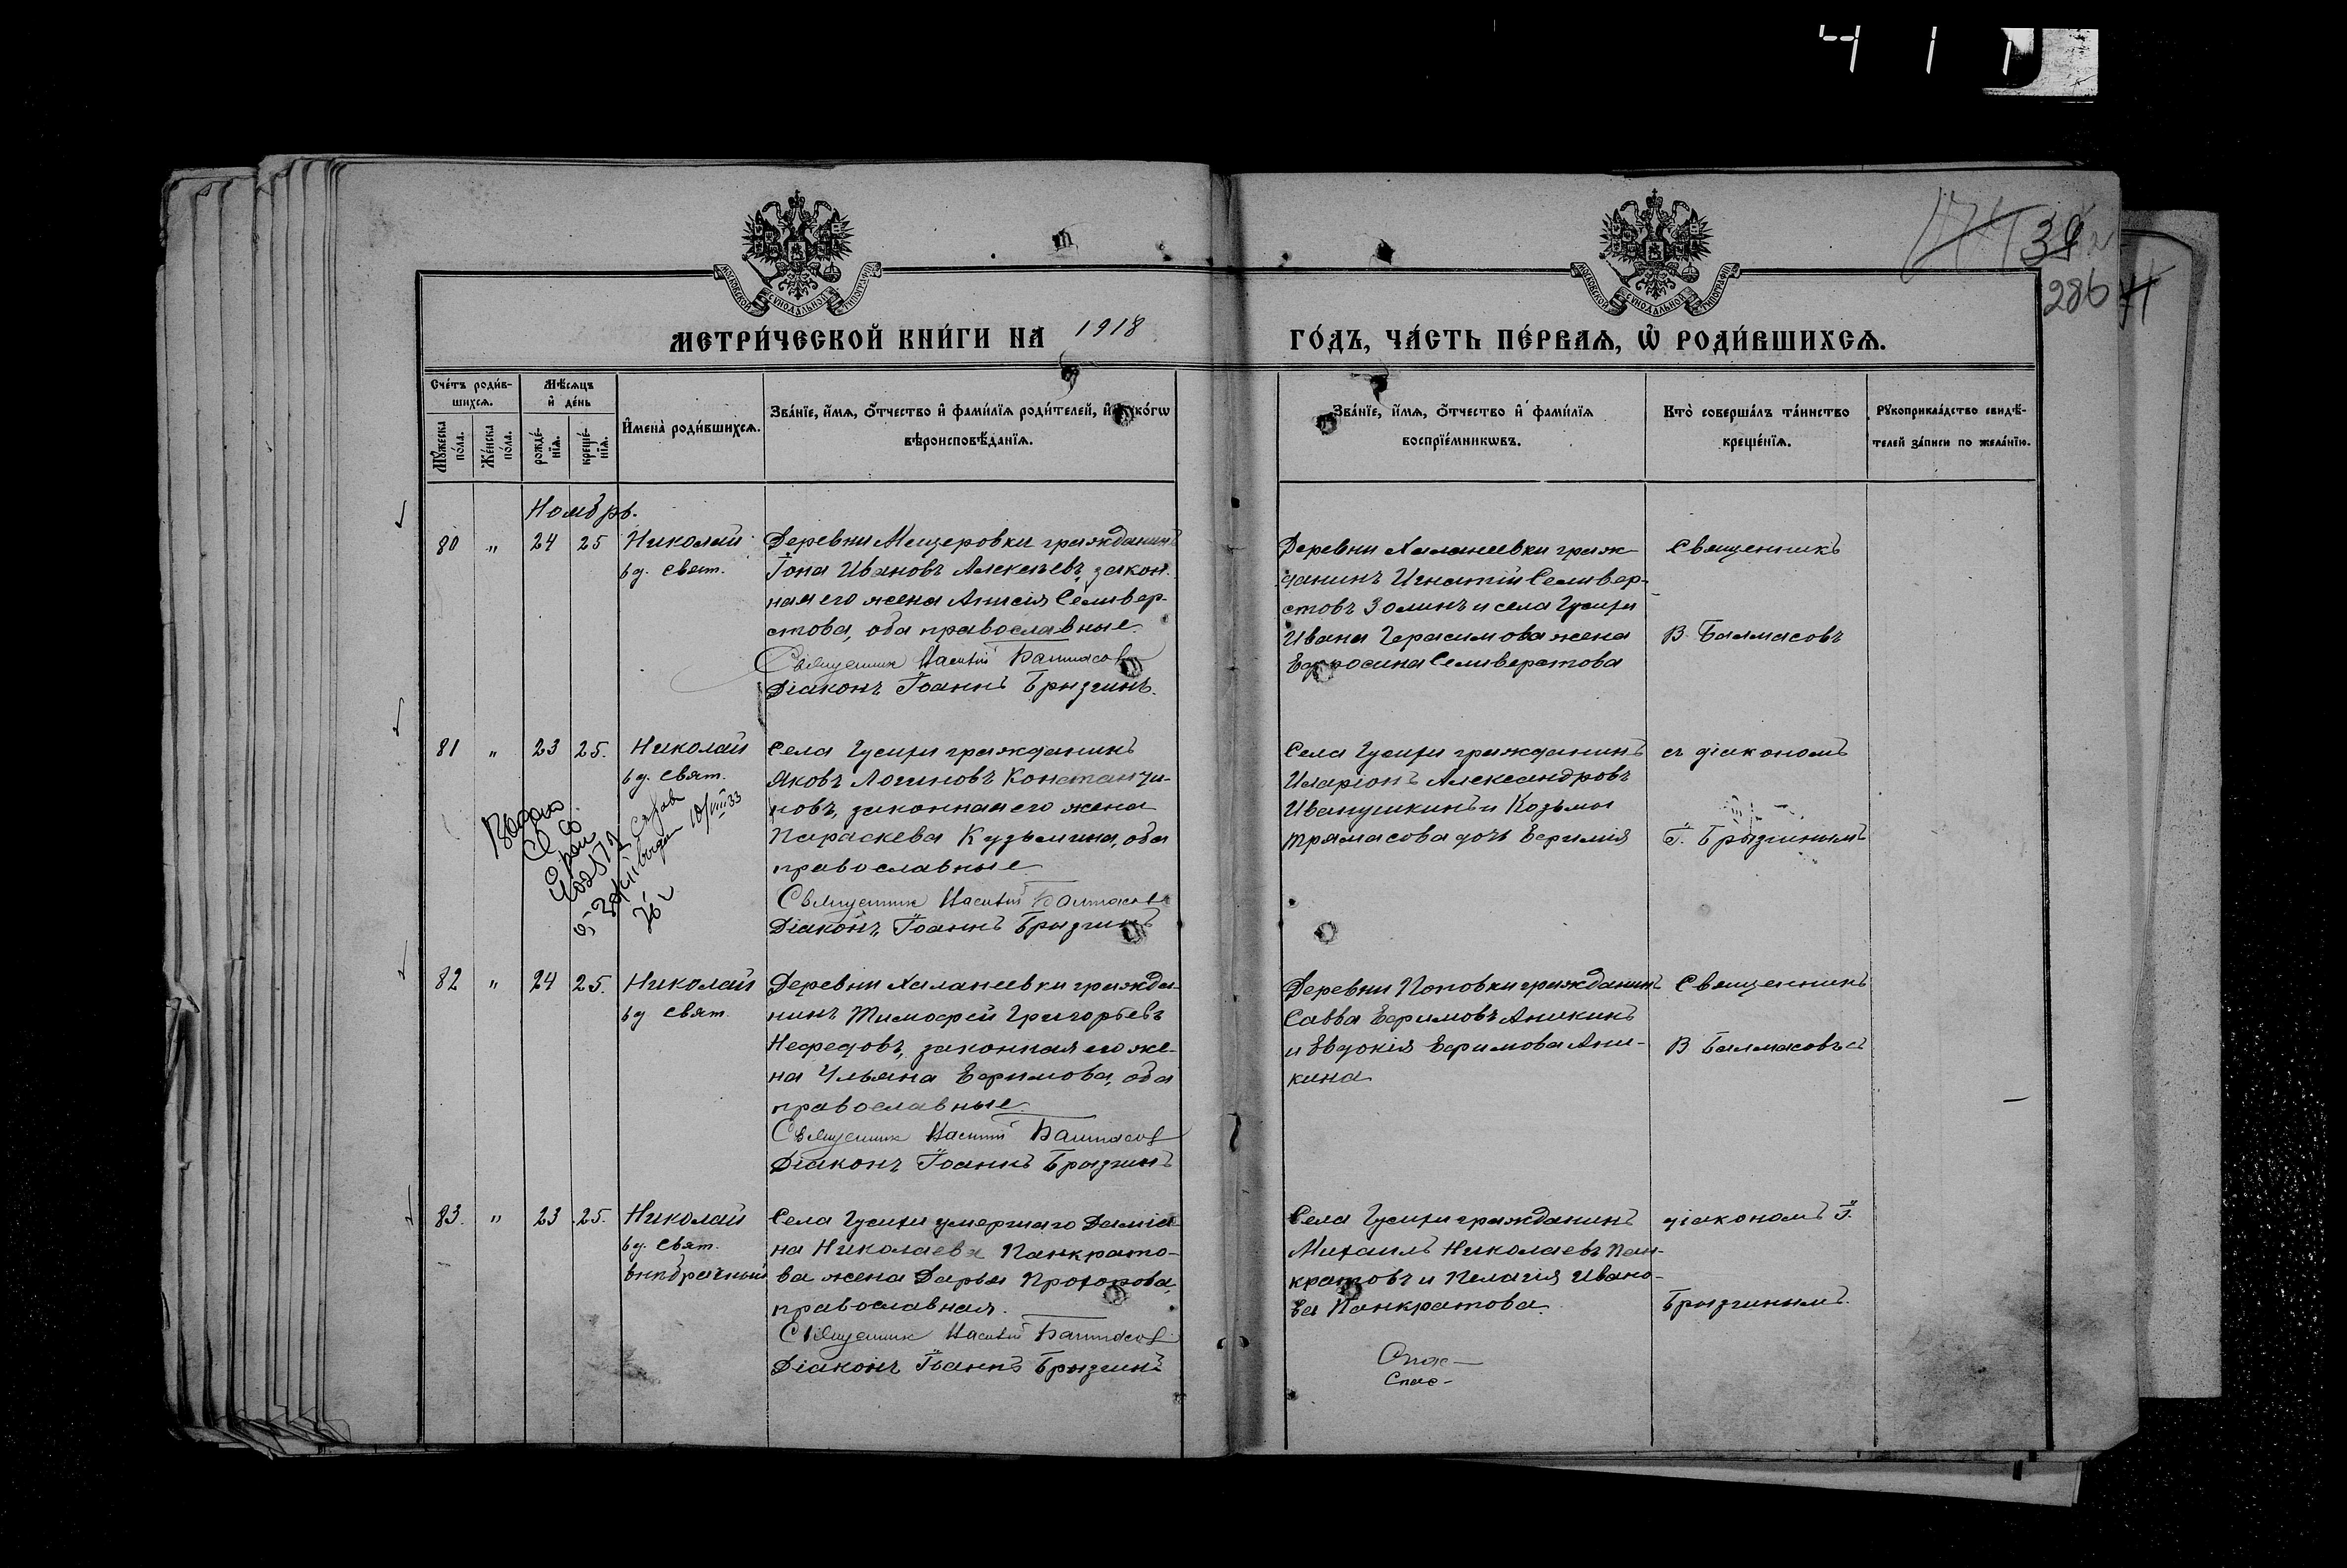 МОСКОВСКОЙ СΥНОДАЛЬНОЙ ТИПОГРАФІИ
МОСКОВСКОЙ СΥНОДАЛЬНОЙ ТИПОГРАФІИ
39
286
МЕТРИ́ЧЕСКОЙ КНИ́ГИ НА 1918 ГО́ДЪ, ЧА́СТЬ ПЕ́РВАѦ, Ѡ РОДИ́ВШИХСѦ.
Сче́тъ роди́в-
шихсѧ.
Мꙋ́жеска по́ла.
Же́нска по́ла.
Мѣ́сѧцъ
и҆ де́нь
рожде́-
нїѧ.
креще́-
нїѧ.
И҆мена̀ роди́вшихсѧ.
Зва́нїе, и҆́мѧ, о҆́тчество и҆ фами́лїѧ роди́телей, и҆ како́гѡ
вѣроисповѣ́данїѧ.
Зва́нїе, и҆́мѧ, о҆́тчество и҆ фами́лїѧ
воспрїе́мникѡвъ.
Кто̀ соверша́лъ та́инство
креще́нїѧ.
Рꙋкоприкла́дство свидѣ́-
телей за́писи по жела́нїю.
Ноябрь.
80 " 24 25 Николай
бд. свят.
Деревни Мещеровки гражданинъ
Іона Ивановъ Алексѣевъ, закон-
ная его жена Анисія Селивер-
стова, оба православные.
Священник Василій Балмасов
Діаконъ Іоаннъ Брызгинъ.
Деревни Халанеевки граж-
данинъ Игнатій Селивер-
стовъ Золинъ и села Гусихи
Ивана Герасимова жена
Ефросина Селиверстова
Священникъ
В. Балмасовъ
81 " 23 25. Николай
бд. свят.
Села Гусихи гражданинъ
Яковъ Логиновъ Константи-
новъ, законная его жена
Параскева Кузьмина, оба
православные
Священник Василій Балмасов
Діаконъ Іоаннъ Брызгинъ
Села Гусихи гражданинъ
Иларіонъ Александровъ
Иванушкинъ и Козьмы
Трямасова дочь Евфимія
съ діакономъ
І. Брызгинымъ
82 " 24 25. Николай
бд свят.
Деревни Халанеевки гражда-
нинъ Тимофей Григорьевъ
Нефедовъ, законная его же-
на Ульяна Ефимова, оба
православные.
Священник Василій Балмасов
Діаконъ Іоаннъ Брызгинъ
Деревни Поповки гражданинъ
Савва Ефимовъ Аникинъ
и Евдокія Ефимова Ани-
кина
Священникъ
В Балмасовъ съ
83. " 23 25. Николай
бд. свят.
внѣбрачный
Села Гусихи умершаго Даміа-
на Николаева Панкрато-
ва жена Дарья Прохорова,
православная.
Священник Василій Балмасов
Діаконъ Іоаннъ Брызгинъ
Села Гусихи гражданинъ
Михаилъ Николаевъ Пан-
кратовъ и Пелагія Ивано-
ва Панкратова.
діакономъ І.
Брызгинымъ.
Спас-
Спас-